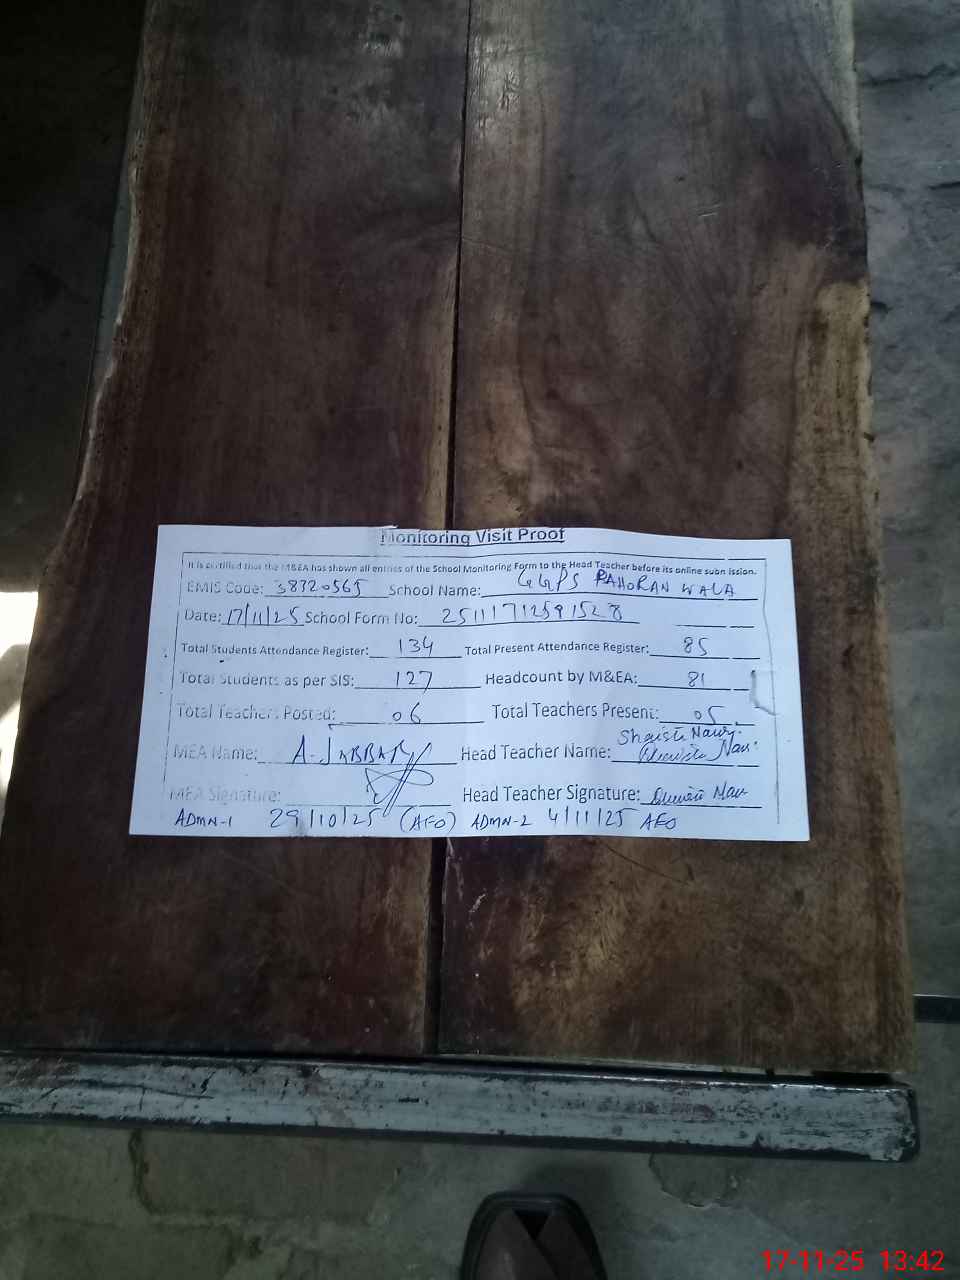 Monitoring Visit Proof
It is certified that the M&EA has shown all entries of the School Monitoring Form to the Head Teacher before its online submission.
EMIS Code: 38320565 School Name: GGPS PAHORAN WALA
Date: 17/11/25 School Form No: 25111712591528
Total Students Attendance Register: 134 Total Present Attendance Register: 85
Total Students as per SIS: 127 Headcount by M&EA: 81
Total Teachers Posted: 06 Total Teachers Present: 05
MEA Name: A-JABBAR Head Teacher Name: Shaista
MEA Signature: Head Teacher Signature:
ADMN-1 29/10/25 (AEO) ADMN-2 4/11/25 AEO
17-11-25 13:42